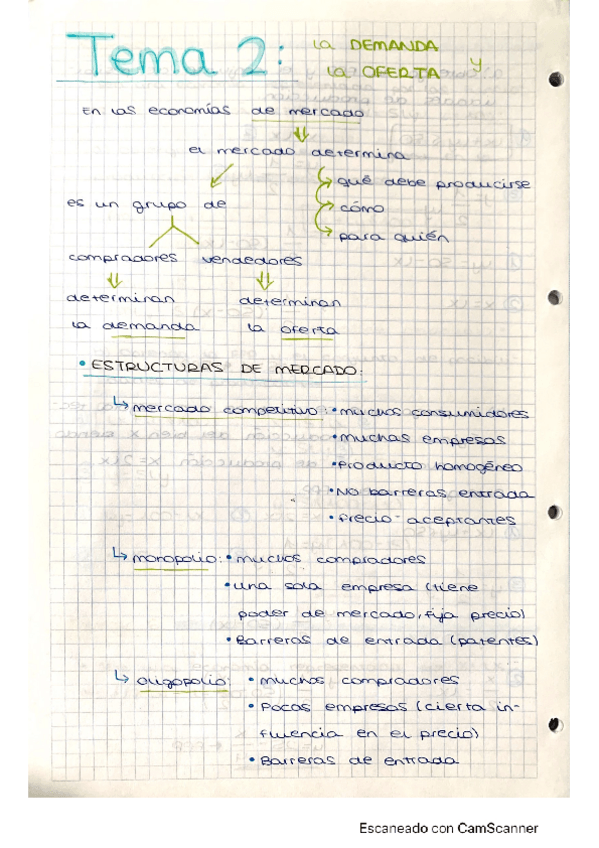 Tema 2: La DEMANDA y
la OFERTA
En las economías de mercado
el mercado determina
qué debe producirse
es un grupo de
cómo
para quién
compradores vendedores
determinan determinan
la demanda la oferta
• ESTRUCTURAS DE MERCADO:
↳ mercado competitivo: • muchos consumidores
• muchas empresas
• Producto homogéneo
• No barreras entrada
• Precio-aceptantes
↳ monopolio: • muchos compradores
• una sola empresa (tiene
poder de mercado, fija precio)
• Barreras de entrada (patentes)
↳ oligopolio: • muchos compradores
• Pocas empresas (cierta in-
fluencia en el precio)
• Barreras de entrada
Escaneado con CamScanner